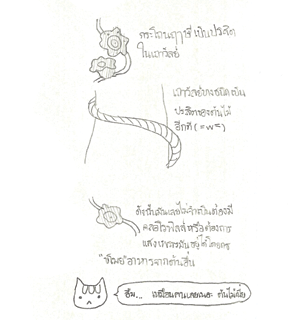 กระโถนฤๅษี เป็นปรสิต
ในเถาวัลย์
เถาวัลย์บางชนิดเป็น
ปรสิตของต้นไม้
อีกที (=w=)
ดังนั้นมันเลยไม่จำเป็นต้องมี
คลอโรฟิลล์หรือต้องการ
แสง เพราะมันอยู่ได้โดยการ
"ขโมย" อาหารจากต้นอื่น
อืม...